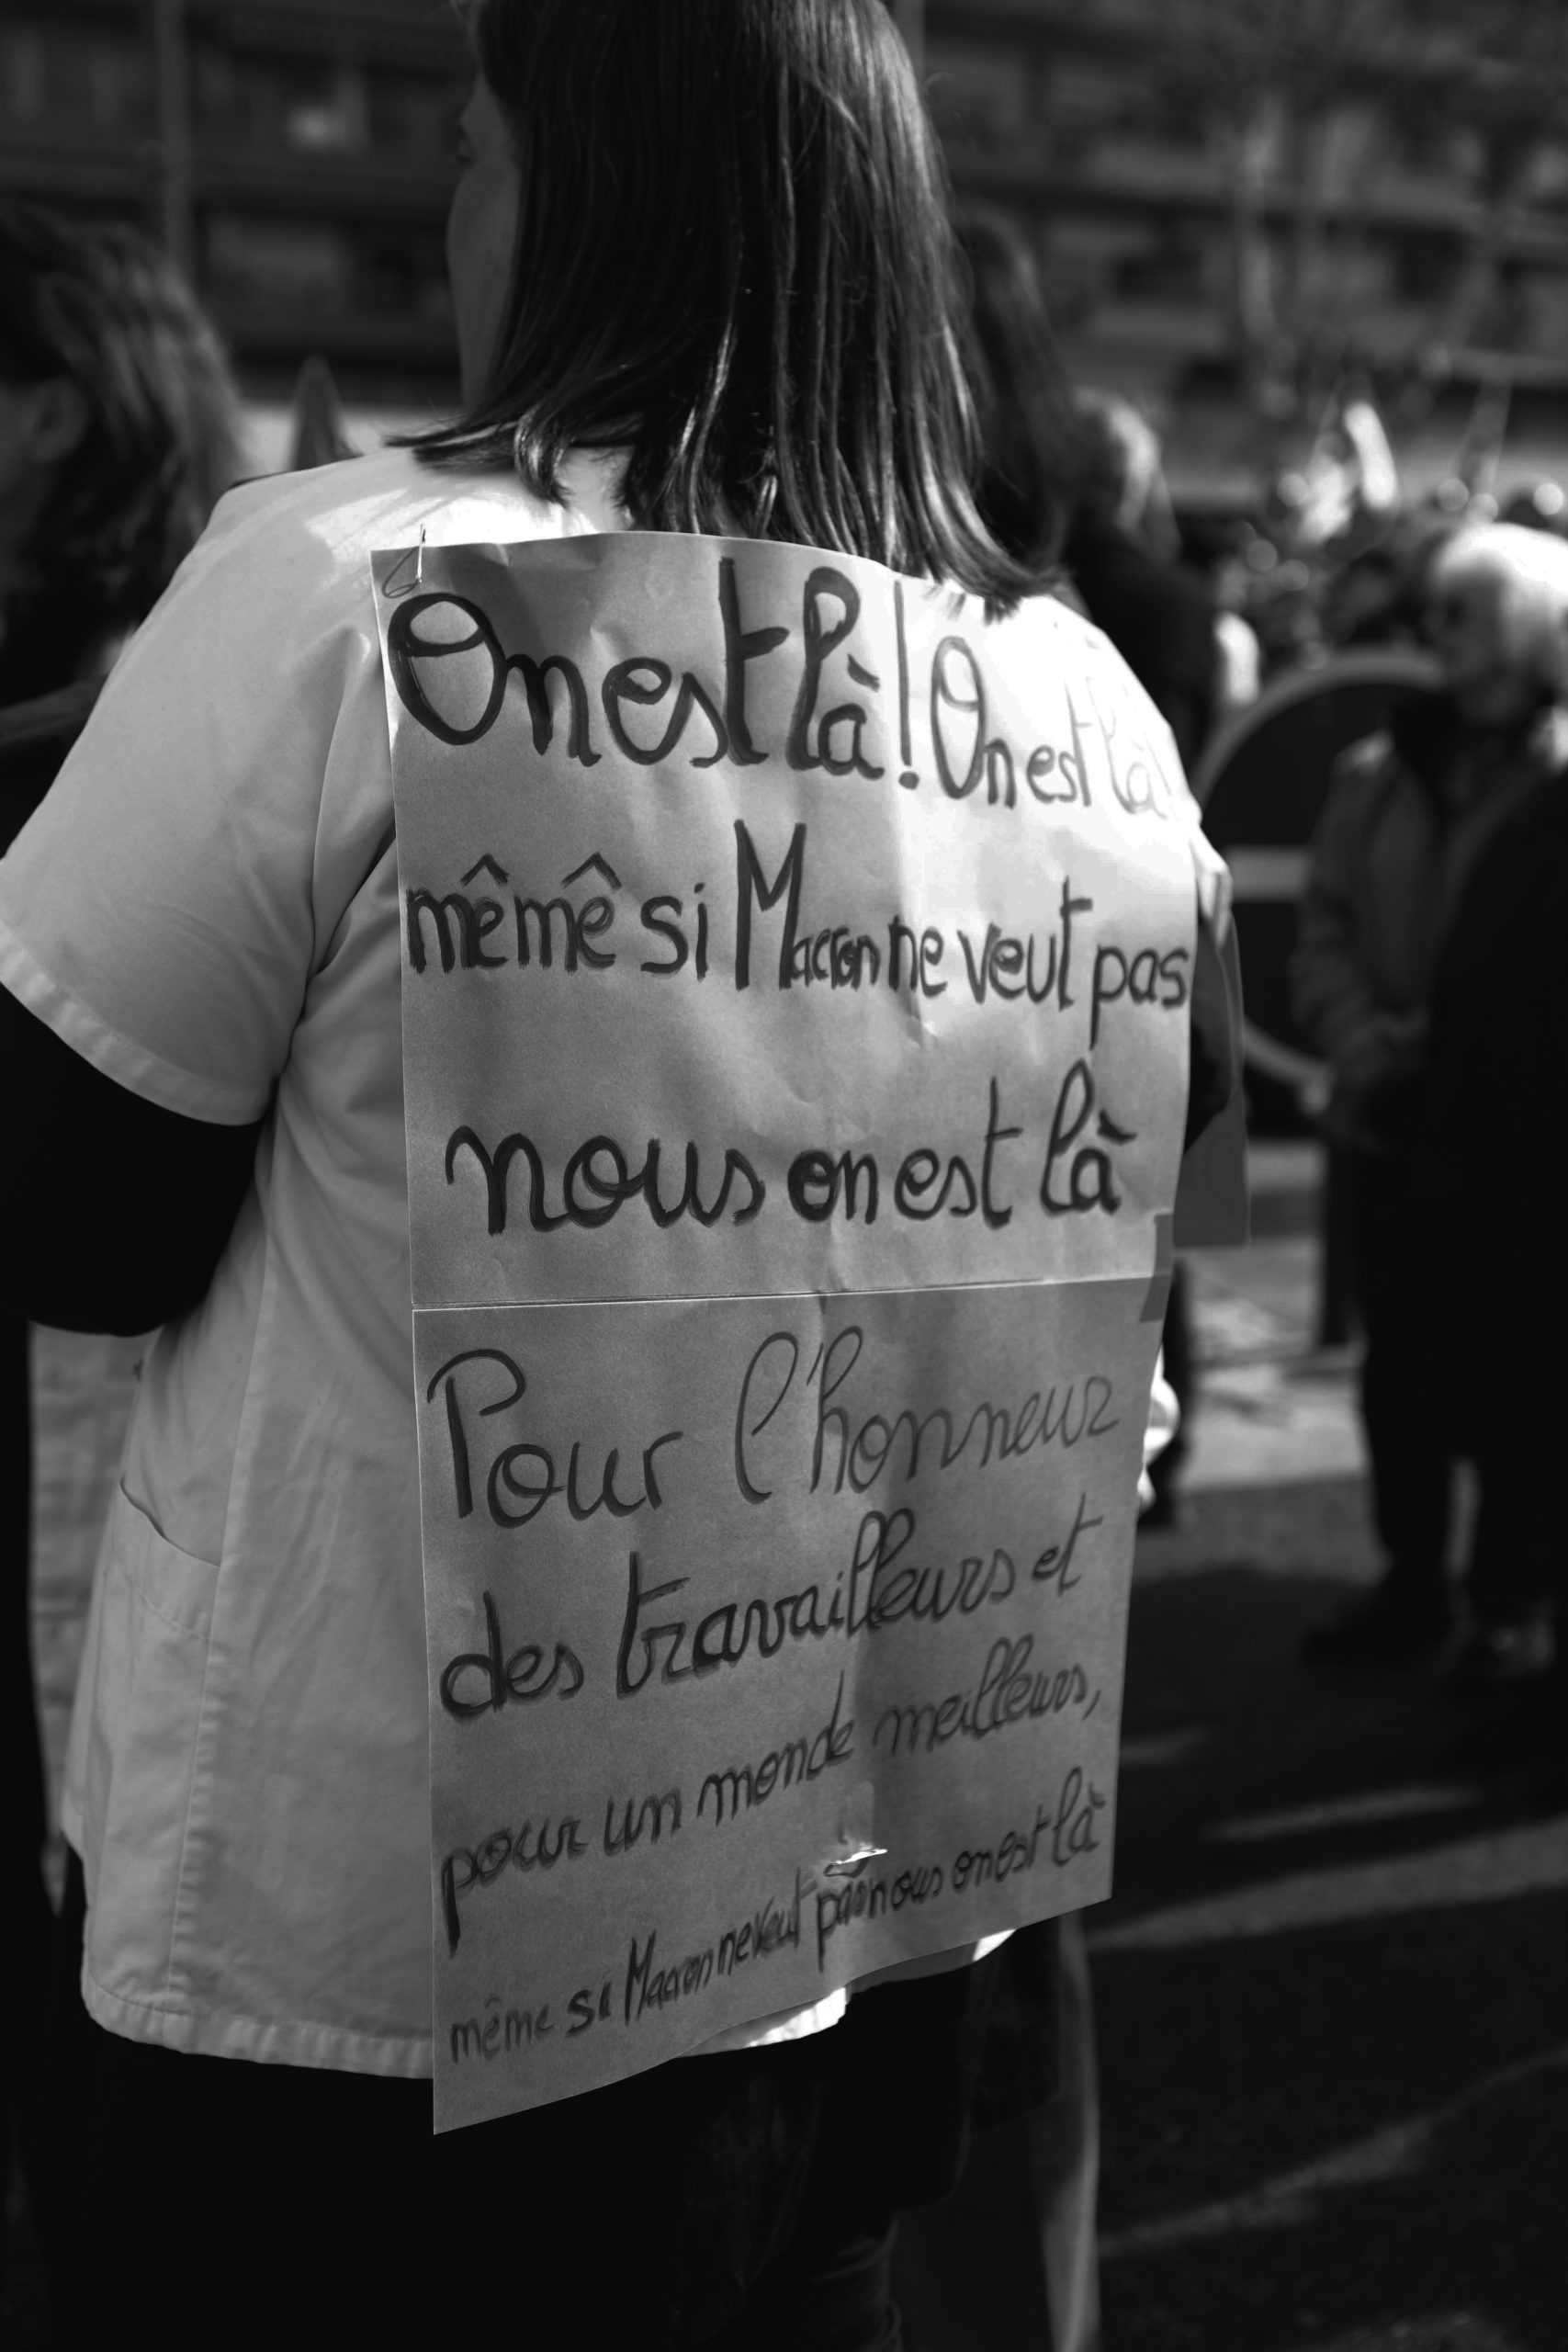 On est là! On est là!
mêmê si Macron ne veut pas
nous on est là
Pour l'honneur
des travailleurs et
pour un monde meilleurs,
même si Macron ne veut pas nous on est là